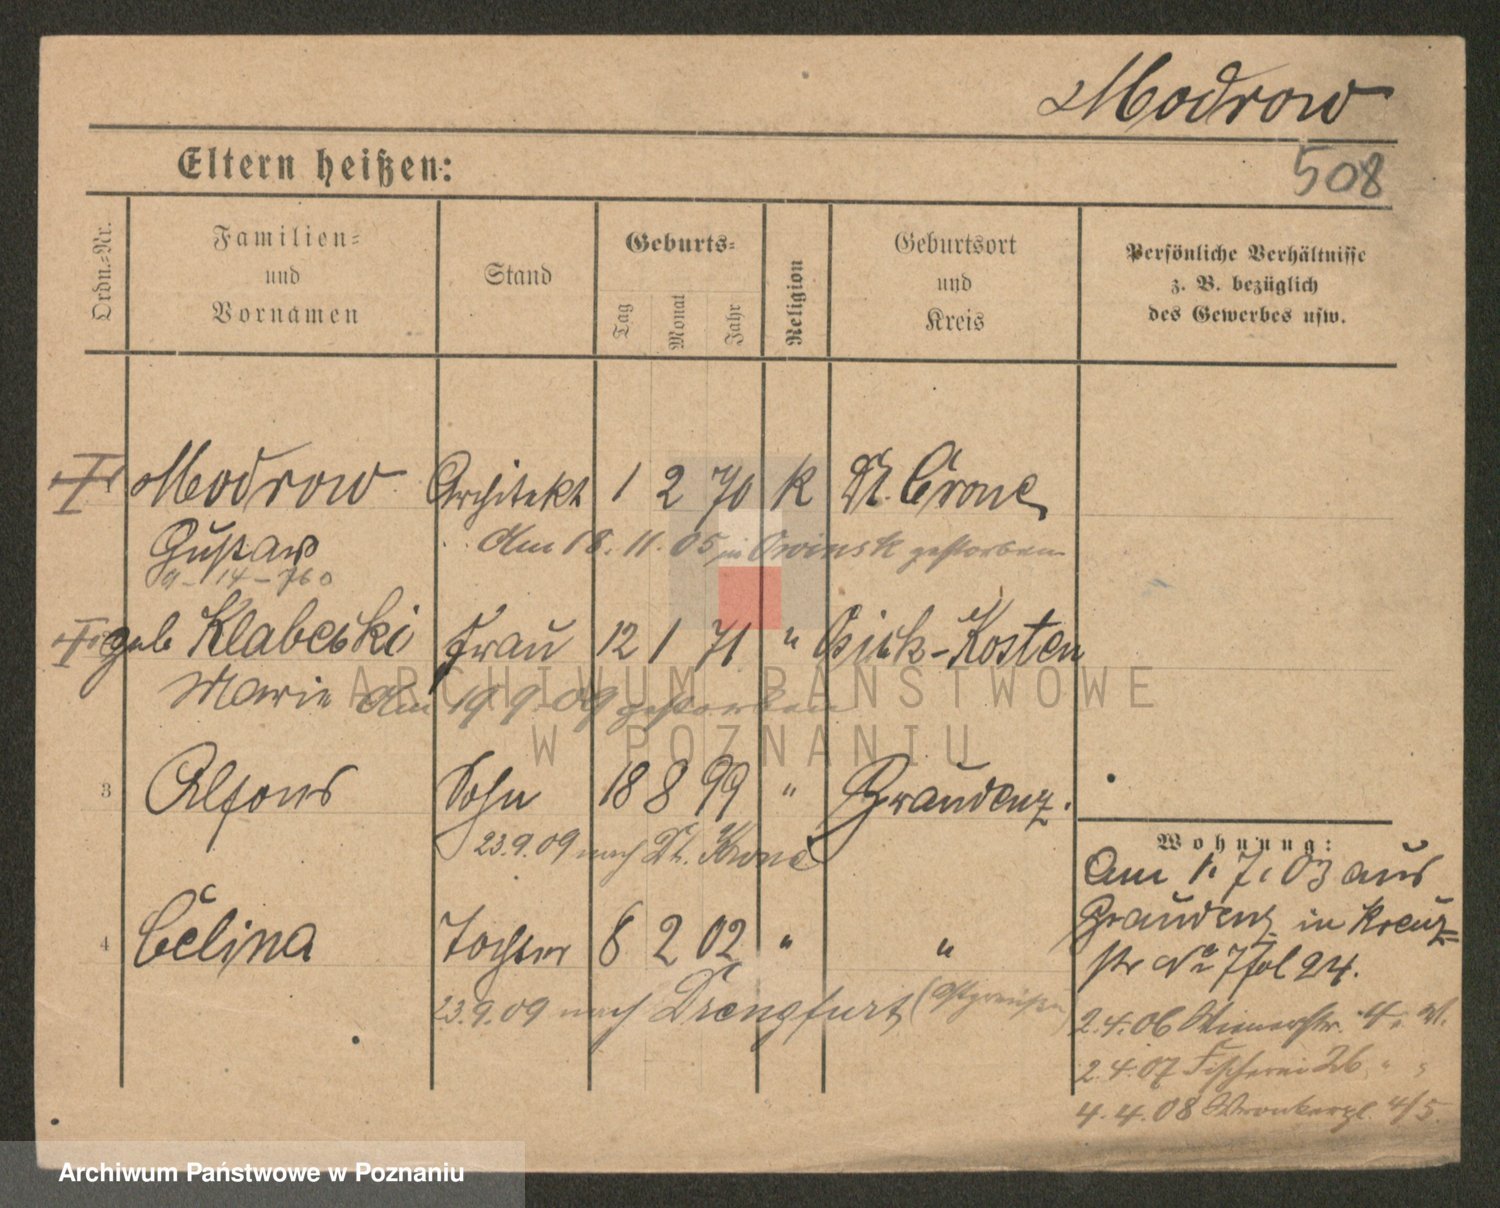 Modrow
508
Eltern heißen:
Ordn.-Nr.
Familien-
und
Vornamen
Stand
Geburts-
Tag
Monat
Jahr
Religion
Geburtsort
und
Kreis
Persönliche Verhältnisse
z. B. bezüglich
des Gewerbes usw.
Modrow Architekt 1 2 70 K Dt. Crone
Gustav Am 18. 11. 05 in Owinsk gestorben
9 - 14 - 760
geb Klabecki Frau 12 1 71 " Kosten
Marie Am 19 9 09 gestorben
3 Alfons Sohn 18 8 99 " Graudenz.
23.9.09 nach Dt. Krone
4 Celina Tochter 6 2 02 " "
23.9.09 nach Drengfurt (Ostpreußen)
Wohnung:
Am 1. 7. 03 aus
Graudenz in Kreuz-
str No 7 fol 24.
2.4.06 4.
2.4.07 Fischerei 26 " "
4.4.08 Wronkerpl. 4/5.
ARCHIWUM PAŃSTWOWE
W POZNANIU
Archiwum Państwowe w Poznaniu